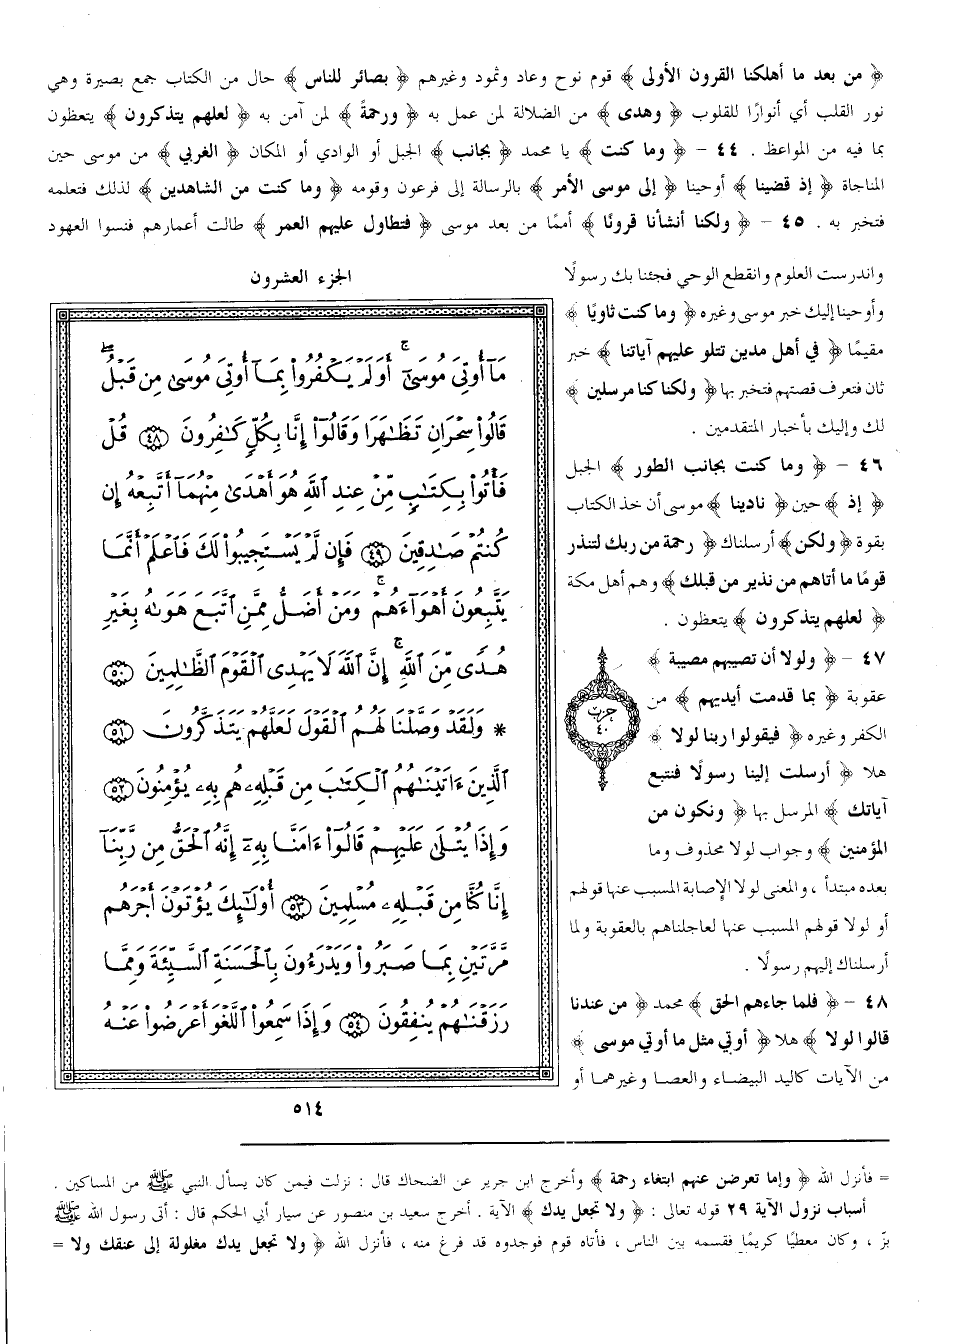 ﴿ من بعد ما أهلكنا القرون الأولى ﴾ قوم نوح وعاد وثمود وغيرهم ﴿ بصائر للناس ﴾ حال من الكتاب جمع بصيرة وهي
نور القلب أي أنوارًا للقلوب ﴿ وهدى ﴾ من الضلالة لمن عمل به ﴿ ورحمةً ﴾ لمن آمن به ﴿ لعلهم يتذكرون ﴾ يتعظون
بما فيه من المواعظ . ٤٤ – ﴿ وما كنت ﴾ يا محمد ﴿ بجانب ﴾ الجبل أو الوادي أو المكان ﴿ الغربي ﴾ من موسى حين
المناجاة ﴿ إذ قضينا ﴾ أوحينا ﴿ إلى موسى الأمر ﴾ بالرسالة إلى فرعون وقومه ﴿ وما كنت من الشاهدين ﴾ لذلك فتعلمه
فتخبر به . ٤٥ – ﴿ ولكنا أنشأنا قرونًا ﴾ أممًا من بعد موسى ﴿ فتطاول عليهم العمر ﴾ طالت أعمارهم فنسوا العهود
واندرست العلوم وانقطع الوحي فجئنا بك رسولًا
وأوحينا إليك خبر موسى وغيره ﴿ وما كنت ثاويًا ﴾
مقيمًا ﴿ في أهل مدين تتلو عليهم آياتنا ﴾ خبر
ثان فتعرف قصتهم فتخبر بها ﴿ ولكنا كنا مرسلين ﴾
لك وإليك بأخبار المتقدمين .
٤٦ – ﴿ وما كنت بجانب الطور ﴾ الجبل
﴿ إذ ﴾ حين ﴿ نادينا ﴾ موسى أن خذ الكتاب
بقوة ﴿ ولكن ﴾ أرسلناك ﴿ رحمة من ربك لتنذر
قومًا ما أتاهم من نذير من قبلك ﴾ وهم أهل مكة
﴿ لعلهم يتذكرون ﴾ يتعظون .
٤٧ – ﴿ ولولا أن تصيبهم مصيبة ﴾
عقوبة ﴿ بما قدمت أيديهم ﴾ من
الكفر وغيره ﴿ فيقولوا ربنا لولا ﴾
هلا ﴿ أرسلت إلينا رسولًا فنتبع
آياتك ﴾ المرسل بها ﴿ ونكون من
المؤمنين ﴾ وجواب لولا محذوف وما
بعده مبتدأ ، والمعنى لولا الإصابة المسبب عنها قولهم
أو لولا قولهم المسبب عنها لعاجلناهم بالعقوبة ولما
أرسلناك إليهم رسولًا .
٤٨ – ﴿ فلما جاءهم الحق ﴾ محمد ﴿ من عندنا
قالوا لولا ﴾ هلا ﴿ أوتي مثل ما أوتي موسى ﴾
من الآيات كاليد البيضاء والعصا وغيرهما أو
حزب
٤٠
الجزء العشرون
مَآ أُوتِيَ مُوسَىٰٓ ۚ أَوَلَمْ يَكْفُرُوا۟ بِمَآ أُوتِيَ مُوسَىٰ مِن قَبْلُ ۖ
قَالُوا۟ سِحْرَانِ تَظَٰهَرَا وَقَالُوٓا۟ إِنَّا بِكُلٍّ كَٰفِرُونَ ٤٨ قُلْ
فَأْتُوا۟ بِكِتَٰبٍ مِّنْ عِندِ ٱللَّهِ هُوَ أَهْدَىٰ مِنْهُمَآ أَتَّبِعْهُ إِن
كُنتُمْ صَٰدِقِينَ ٤٩ فَإِن لَّمْ يَسْتَجِيبُوا۟ لَكَ فَٱعْلَمْ أَنَّمَا
يَتَّبِعُونَ أَهْوَآءَهُمْ ۚ وَمَنْ أَضَلُّ مِمَّنِ ٱتَّبَعَ هَوَىٰهُ بِغَيْرِ
هُدًى مِّنَ ٱللَّهِ ۚ إِنَّ ٱللَّهَ لَا يَهْدِى ٱلْقَوْمَ ٱلظَّٰلِمِينَ ٥٠
* وَلَقَدْ وَصَّلْنَا لَهُمُ ٱلْقَوْلَ لَعَلَّهُمْ يَتَذَكَّرُونَ ٥١
ٱلَّذِينَ ءَاتَيْنَٰهُمُ ٱلْكِتَٰبَ مِن قَبْلِهِۦ هُم بِهِۦ يُؤْمِنُونَ ٥٢
وَإِذَا يُتْلَىٰ عَلَيْهِمْ قَالُوٓا۟ ءَامَنَّا بِهِۦٓ إِنَّهُ ٱلْحَقُّ مِن رَّبِّنَآ
إِنَّا كُنَّا مِن قَبْلِهِۦ مُسْلِمِينَ ٥٣ أُو۟لَٰٓئِكَ يُؤْتَوْنَ أَجْرَهُم
مَّرَّتَيْنِ بِمَا صَبَرُوا۟ وَيَدْرَءُونَ بِٱلْحَسَنَةِ ٱلسَّيِّئَةَ وَمِمَّا
رَزَقْنَٰهُمْ يُنفِقُونَ ٥٤ وَإِذَا سَمِعُوا۟ ٱللَّغْوَ أَعْرَضُوا۟ عَنْهُ
٥١٤
= فأنزل الله ﴿ وإما تعرضن عنهم ابتغاء رحمة ﴾ وأخرج ابن جرير عن الضحاك قال : نزلت فيمن كان يسأل النبي ﷺ من المساكين .
أسباب نزول الآية ٢٩ قوله تعالى : ﴿ ولا تجعل يدك ﴾ الآية . أخرج سعيد بن منصور عن سيار أبي الحكم قال : أتى رسول الله ﷺ
بزّ ، وكان معطيًا كريمًا فقسمه بين الناس ، فأتاه قوم فوجدوه قد فرغ منه ، فأنزل الله ﴿ ولا تجعل يدك مغلولة إلى عنقك ولا =